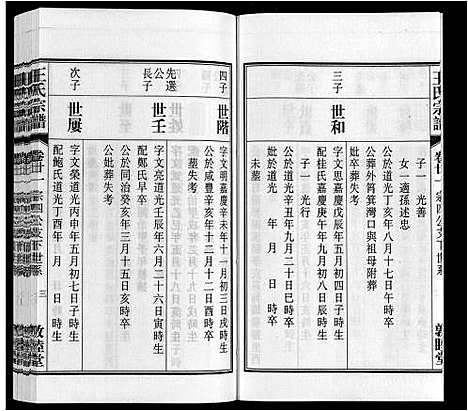 王氏宗譜
卷廿一
宗四公支下世系
敦睦堂
子一 光善
女一適孫述忠
公歿道光丁亥年八月十七日午時卒
公葬外筲箕灣口與祖母附葬
妣卒葬失考
三子
世和
字文思嘉慶戊辰年五月初四日子時生
配桂氏嘉慶庚午年九月初十日時生
公於道光辛丑年九月二十日巳時卒
妣於道光 年 月 日 時卒
未墓
四子
世階
字文明嘉慶辛未年十一月初三日戌時生
公於咸豐辛亥年十二月十二日酉時卒
墓失考
先選公長子
世壬
字文亮道光壬辰年六月二十六日寅時生
配鄭氏早卒
公於同治癸亥年三月十五日亥時卒
公妣葬失考
次子
世屢
字文榮道光丙申年五月初七日子時生
配鮑氏道光丁酉年 月 日 時生
王氏宗譜
卷廿一
宗四公支下世系
三
敦睦堂